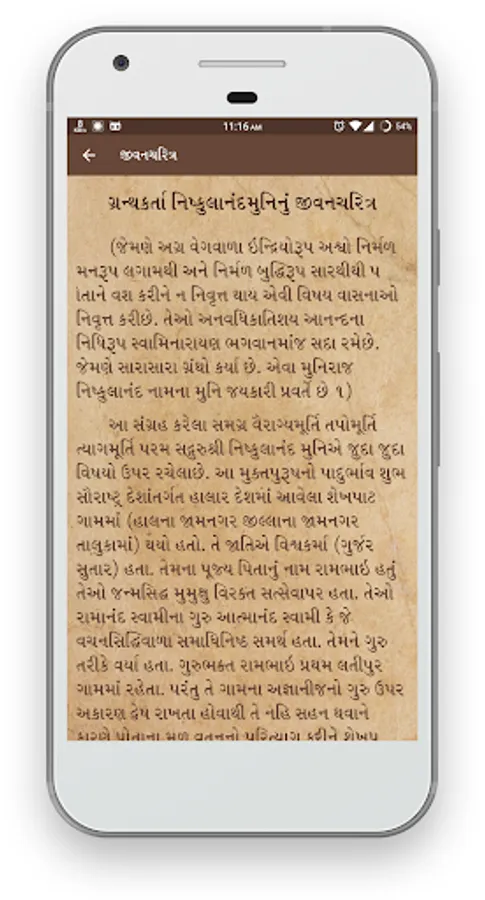 11:16 AM
54%
જીવનચરિત્ર
ગ્રન્થકર્તા નિષ્કુલાનંદમુનિનું જીવનચરિત્ર
(જેમણે અગ્ર વેગવાળા ઇન્દ્રિયોરૂપ અશ્વો નિર્મળ
મનરૂપ લગામથી અને નિર્મળ બુદ્ધિરૂપ સારથીથી પ
ોતાને વશ કરીને ન નિવૃત્ત થાય એવી વિષય વાસનાઓ
નિવૃત્ત કરીછે. તેઓ અનવધિકાતિશય આનન્દના
નિધિરૂપ સ્વામિનારાયણ ભગવાનમાંજ સદા રમેછે.
જેમણે સારાસારા ગ્રંથો કર્યા છે. એવા મુનિરાજ
નિષ્કુલાનંદ નામના મુનિ જયકારી પ્રવર્તે છે ૧)
આ સંગ્રહ કરેલા સમગ્ર વૈરાગ્યમૂર્તિ તપોમૂર્તિ
ત્યાગમૂર્તિ પરમ સદ્ગુરુશ્રી નિષ્કુલાનંદ મુનિએ જુદા જુદા
વિષયો ઉપર રચેલાછે. આ મુક્તપુરૂષનો પાદુર્ભાવ શુભ
સૌરાષ્ટ્ર દેશાંતર્ગત હાલાર દેશમાં આવેલા શેખપાટ
ગામમાં (હાલના જામનગર જીલ્લાના જામનગર
તાલુકામાં) થયો હતો. તે જાતિએ વિશ્વકર્મા (ગુર્જર
સુતાર) હતા. તેમના પૂજ્ય પિતાનું નામ રામભાઇ હતું
તેઓ જન્મસિદ્ધ મુમુક્ષુ વિરક્ત સત્સેવાપર હતા. તેઓ
રામાનંદ સ્વામીના ગુરુ આત્માનંદ સ્વામી કે જે
વચનસિદ્ધિવાળા સમાધિનિષ્ઠ સમર્થ હતા. તેમને ગુરુ
તરીકે વર્યા હતા. ગુરુભક્ત રામભાઇ પ્રથમ લતીપુર
ગામમાં રહેતા. પરંતુ તે ગામના અજ્ઞાનીજનો ગુરુ ઉપર
અકારણ દ્વેષ રાખતા હોવાથી તે નહિ સહન થવાને
કારણે પોતાના મૂળ વતનનો પરિત્યાગ કરીને શેખપ